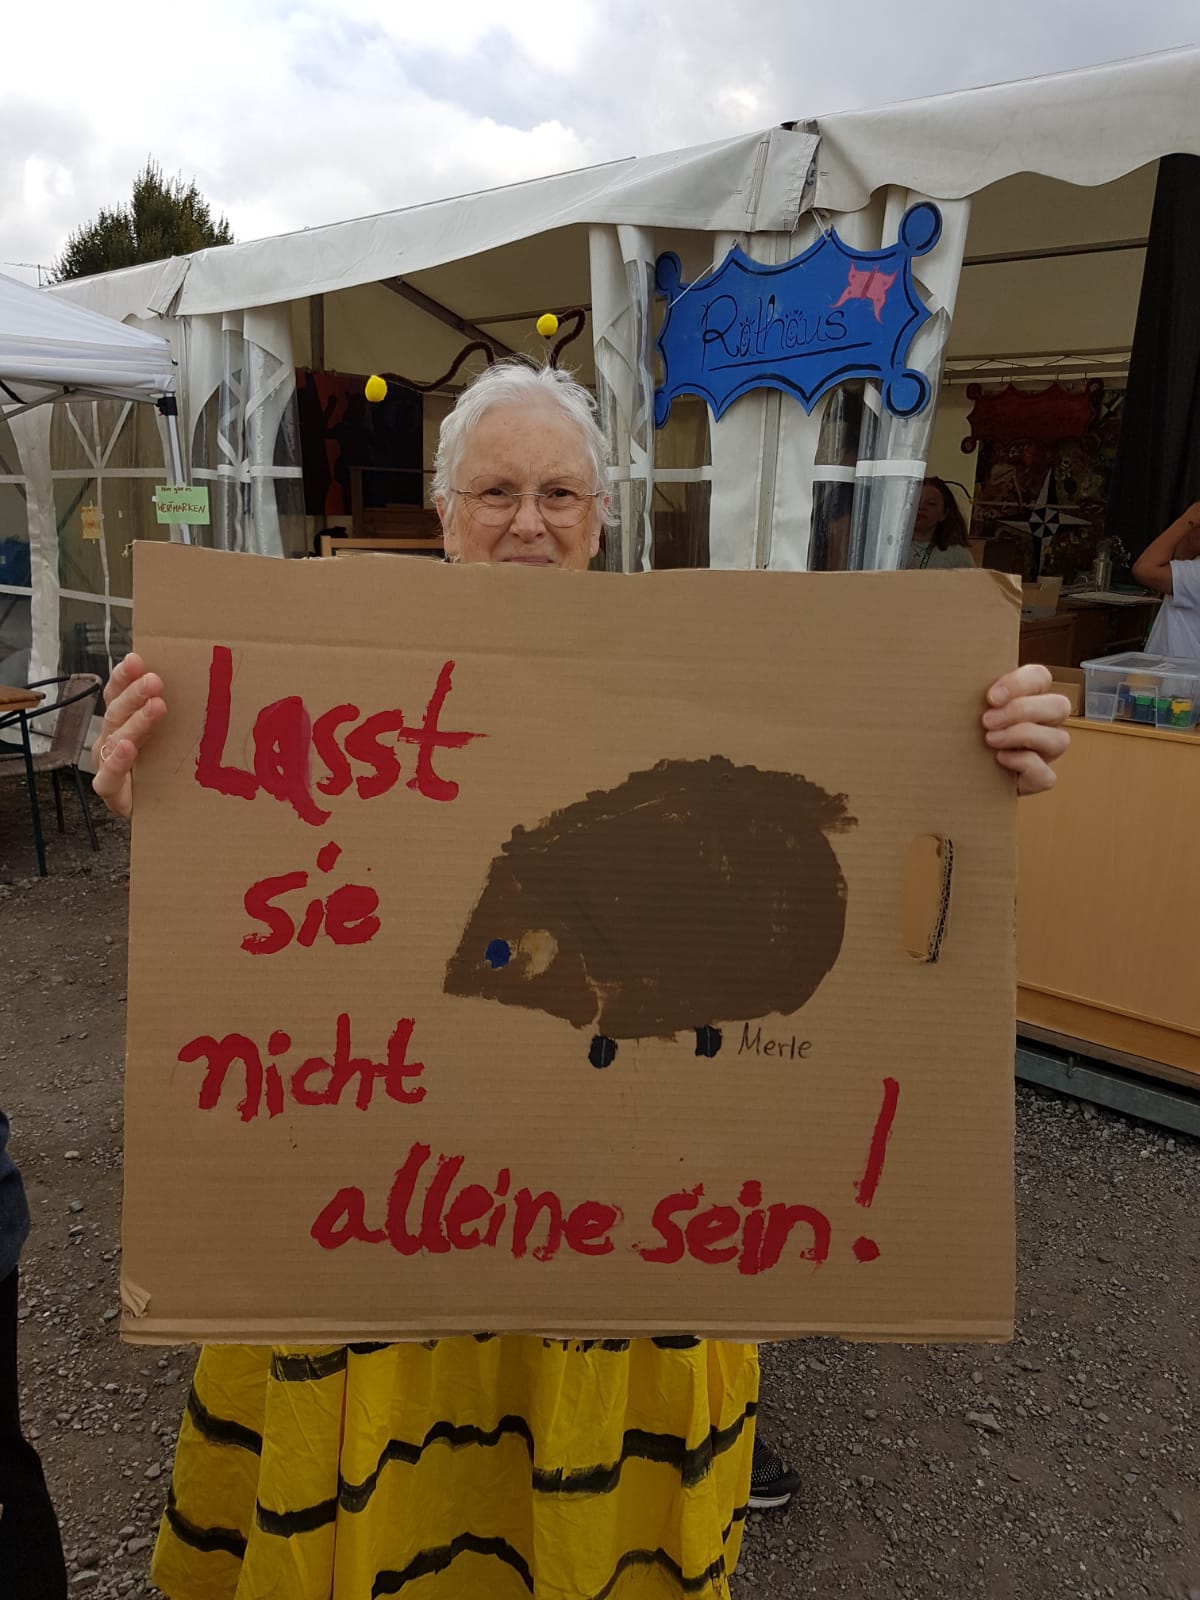 Rathaus
WERTMARKEN
Lasst
sie
nicht
Merle
alleine sein!